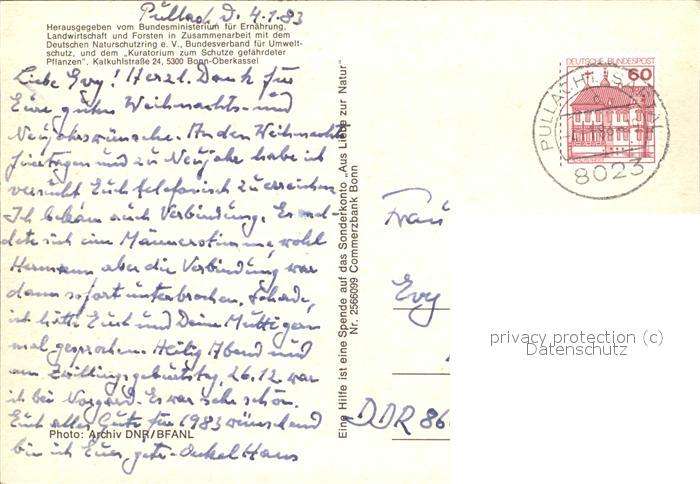 Pullach d. 4.1.83
Herausgegeben vom Bundesministerium für Ernährung,
Landwirtschaft und Forsten in Zusammenarbeit mit dem
Deutschen Naturschutzring e. V., Bundesverband für Umwelt-
schutz, und dem „Kuratorium zum Schutze gefährdeter
Pflanzen". Kalkuhlstraße 24, 5300 Bonn-Oberkassel
Liebe Evy! Herzl. Dank für
Eure guten Weihnachts- und
Neujahrswünsche. An den Weihnachts
feiertagen und zu Neujahr habe ich
versucht Euch telefonisch zu erreichen.
Ich bekam auch Verbindung. Es mel-
dete sich eine Männerstimme, wohl
Hermann aber die Verbindung war
dann sofort unterbrochen. Schade,
ich hätte Euch und Deine Mutti gern
mal gesprochen. Heilig Abend und
am Zwillingsgeburtstag, 26.12. war
ich bei Es war sehr schön.
Euch alles Gute für 1983 wünschend
bin ich Euer Onkel Hans
Photo: Archiv DNR/BFANL
Eine Hilfe ist eine Spende auf das Sonderkonto „Aus Liebe zur Natur"
Nr. 2566099 Commerzbank Bonn
DEUTSCHE BUNDESPOST
60
PULLACH I. ISARTAL
8023
Frau
Evy
DDR 86
privacy protection (c)
Datenschutz